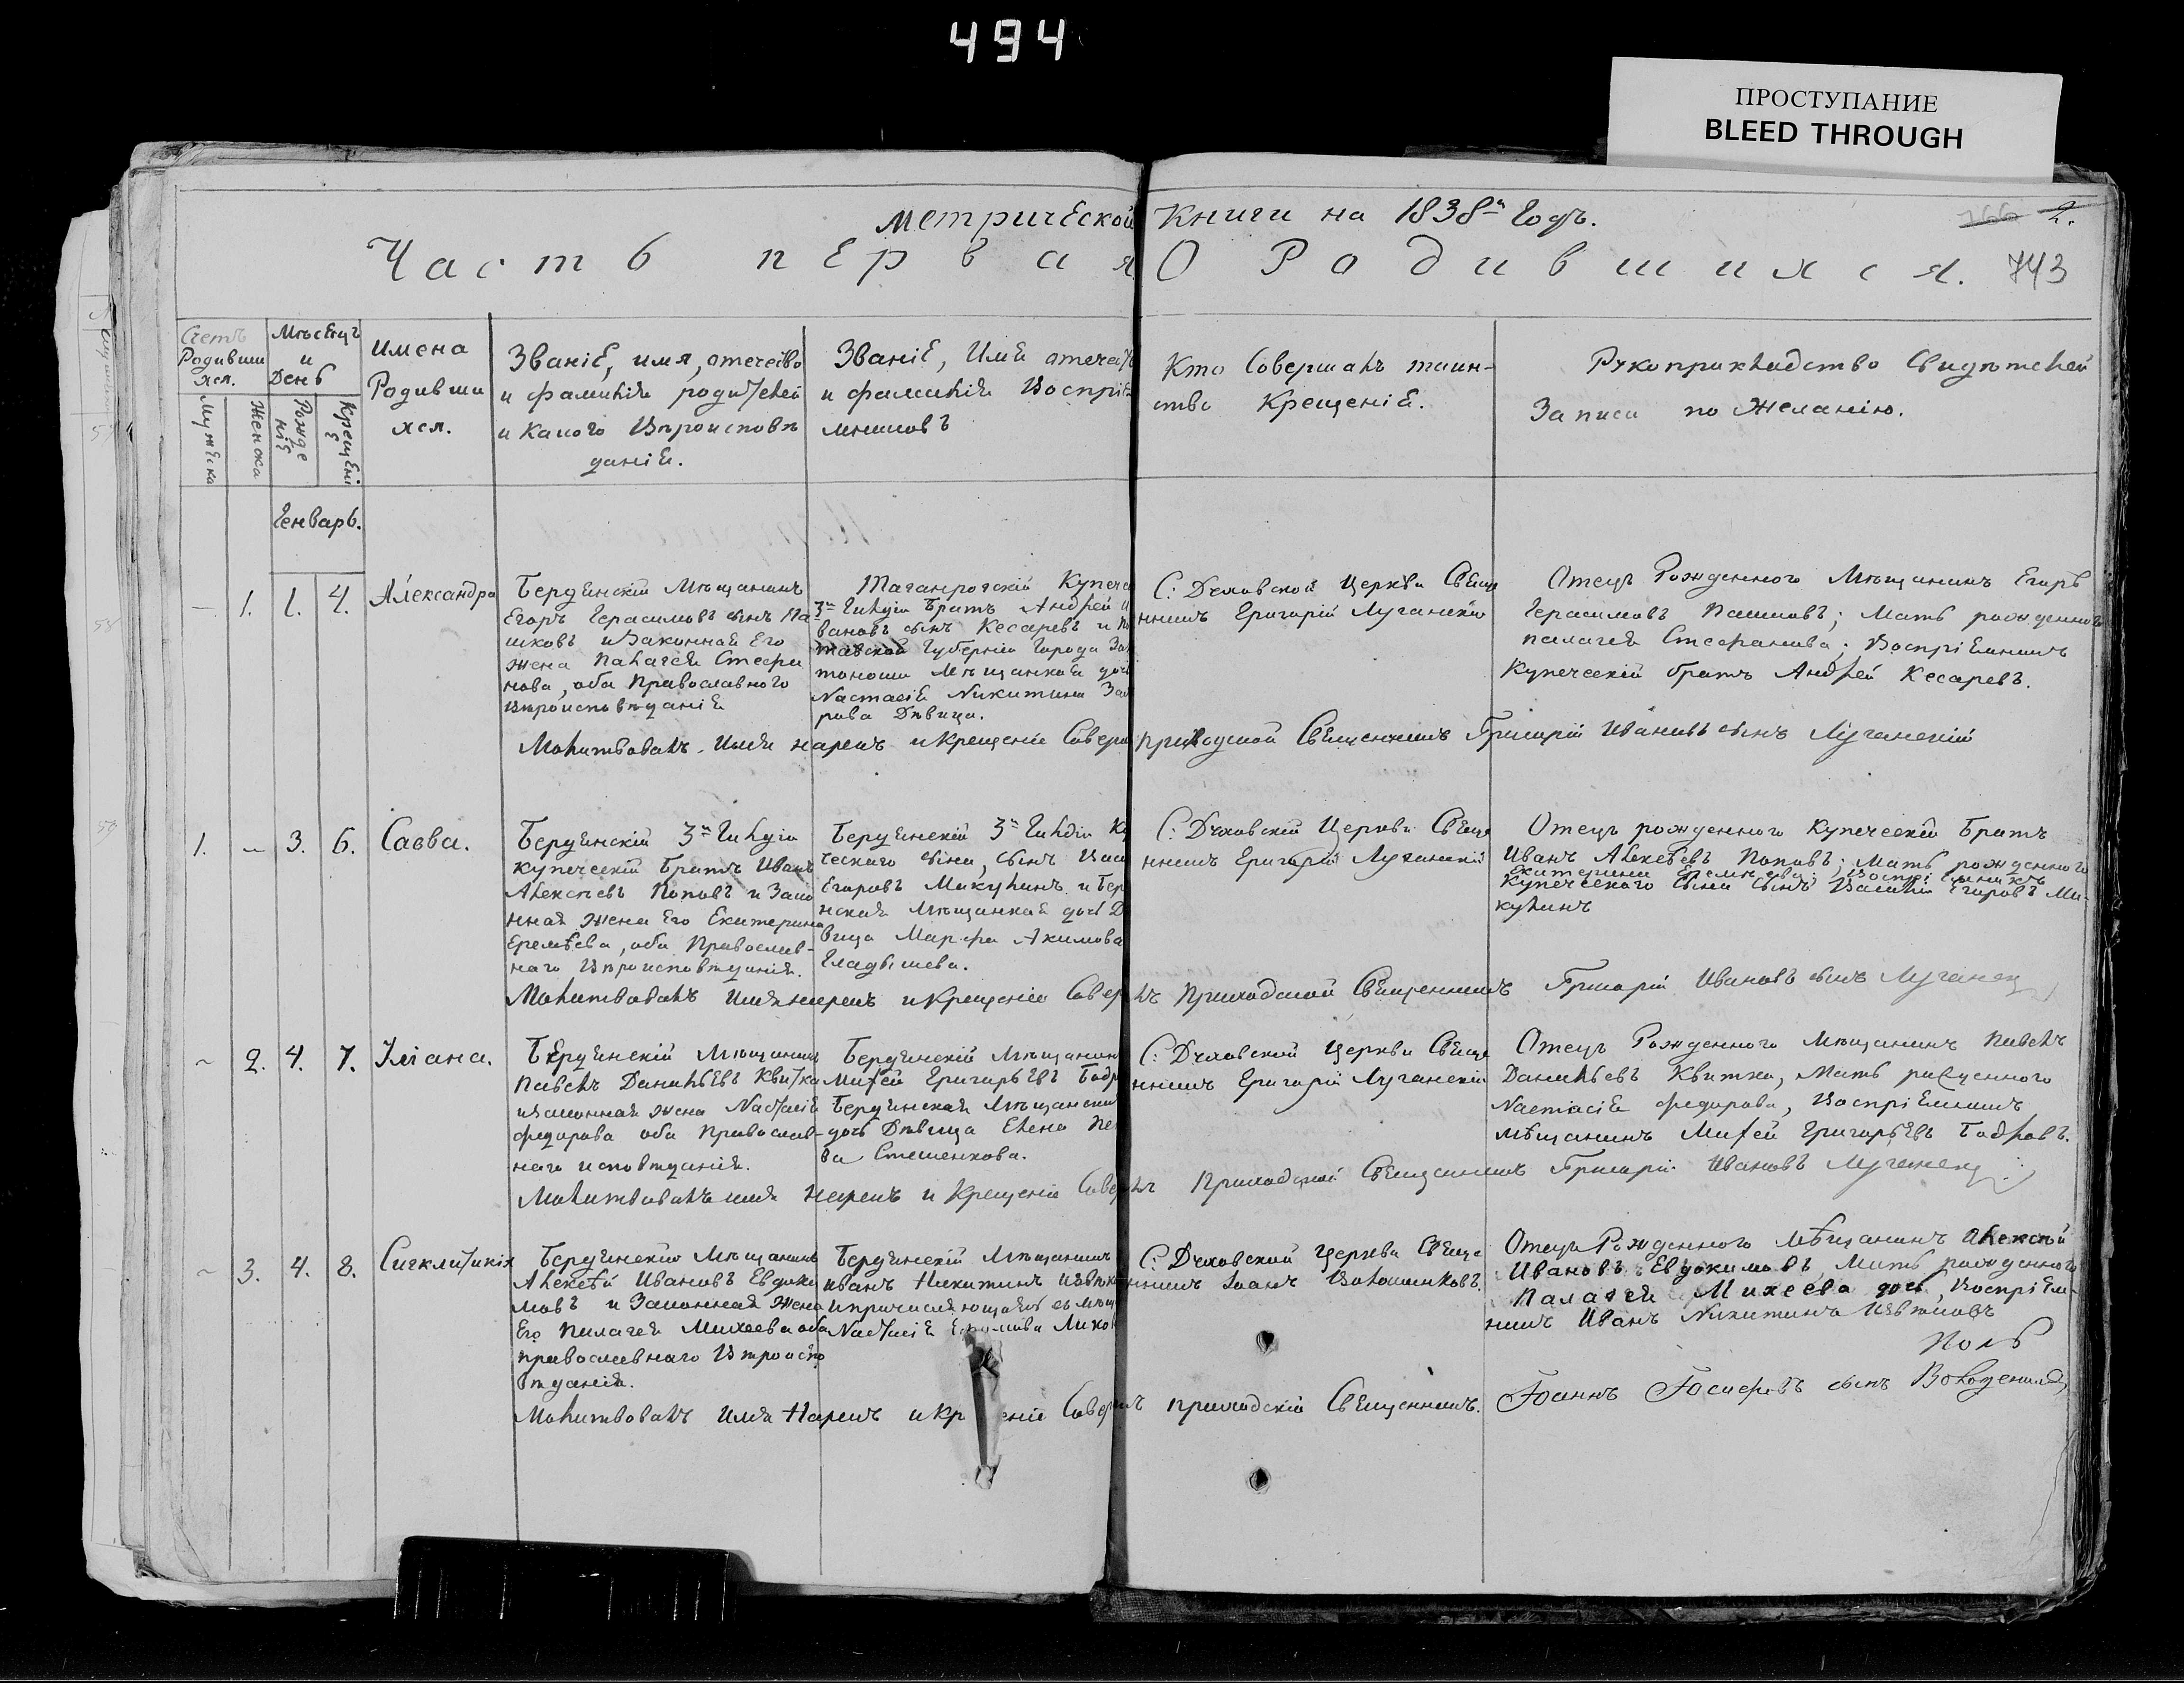 494
ПРОСТУПАНИЕ
BLEED THROUGH
Метрической Книги на 1838й Годъ.
166 2.
Часть первая О Родившихся. 743
Счетъ Родивши хся.
Мужеска
Женска
Мѣсецъ и День
Рожде ніе
Крещені
Имена Родивши хся.
Званіе, имя, отечество
и фамилія родителей
и какого Вѣроисповѣ
данія.
Званіе, Имя отечест
и фамилія Воспріе
мниковъ
Кто Совершалъ таин-
ство Крещенія.
Рукоприкладство Свидѣтелей
Записи по Желанію.
Генварь.
— 1. 1. 4. Александра
Бердянскій Мѣщанинъ
Егоръ Герасимовъ сынъ Па
шковъ и Законная Его
жена Палагея Стефа
нова, оба Православного
Вѣроисповѣданія
Таганрогскій Купече
3й Гилдіи Братъ Андрей И
вановъ сынъ Кесаревъ и По
тавской Губерніи Города Зо
тоноши Мѣщанкая дочь
Настасія Никитина
Дѣвица.
С: Духовской Церкви Свяще
нникъ Григорій Луганскій
Отецъ Рожденного Мѣщанинъ Егоръ
Герасимовъ Пашковъ; Мать рожденного
палагея Стефанова; Воспріемникъ
Купеческій братъ Андрей Кесаревъ.
Молитвовалъ. Имя нарекъ и Крещеніе Совер приходской Священникъ Григорій Ивановъ сынъ Луганскій
1. — 3. 6. Савва.
Бердянскій 3й Гилдіи
купеческій Братъ Иванъ
Алексѣевъ Поповъ и Зако
нная жена Его Екатерина
Еремѣева, оба Православ-
наго Вѣроисповѣданія.
Бердянскій 3й Гилдіи Ку
ческаго сына, сынъ Васи
Егоровъ Микулинъ и Бер
нская Мѣщанкая дочь Д
вица Марфа Акимова
Гладышева.
С: Духовской Церкви Свяще
нникъ Григорій Луганскій
Отецъ рожденного Купеческій Братъ
Иванъ Алексѣевъ Поповъ; Мать рожденного
Екатерина Еремѣева; Воспріемникъ
Купеческого сына сынъ Василій Егоровъ Ми-
кулинъ
Молитвовалъ Имя нарекъ и Крещеніе Совер лъ Приходской Священникъ Григорій Ивановъ сынъ Луганск
~ 2. 4. 7. Уліана.
Бердянскій Мѣщанинъ
Павелъ Данильевъ Квитка
и Законная жена Настасія
Федорова оба Православ-
наго исповѣданія.
Бердянскій Мѣщанинъ
Матѳей Григорьевъ Бодр
Бердянская Мѣщанская
дочь Дѣвица Елена Пе
ва Стешенкова.
С: Духовской Церкви Свяще
нникъ Григорій Луганскій
Отецъ Рожденного Мѣщанинъ Павелъ
Данильевъ Квитка, Мать рожденного
Настасія Федорова, Воспріемникъ
мѣщанинъ Матѳей Григорьевъ Бодровъ.
Молитвовалъ имя нарекъ и Крещеніе Совер лъ Приходской Священникъ Григорій Ивановъ Луганск
~ 3. 4. 8. Сигклитикія
Бердянскій Мѣщанинъ
Алексѣй Ивановъ Евдоки
мовъ и Законная Жена
Его Палагея Михеева оба
православнаго Вѣроиспо
вѣданія.
Бердянскій Мѣщанинъ
Иванъ Никитинъ
и причисляющаяся
Настасія
С: Духовской Церкви Свяще
нникъ Іоанъ Волошиновъ.
Отецъ Рожденного Мѣщанинъ Алексѣй
Ивановъ Евдокимовъ, Мать рожденного
Палагея Михеева дочь, Воспріем-
никъ Иванъ Никитинъ
Молитвовалъ Имя Нарекъ и Кр еніе Совер лъ приходскій Священникъ. Іоаннъ Іосифовъ сынъ